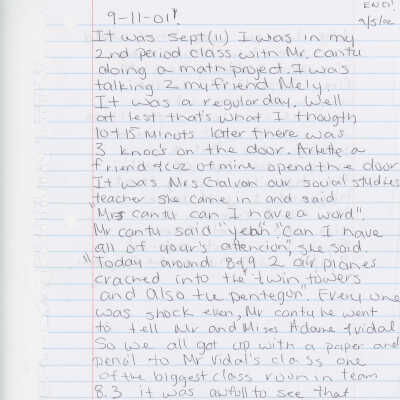 END!
9-11-01!
9/5/02
It was sept(11) I was in my
2nd period class with Mr. Cantu
doing a math project. I was
talking 2 my friend Mely.
It was a regular day, Well
at lest that's what I thougth
10 + 15 Minuts later there was
3 knocs on the door. Arlette a
friend + cuz of mine opend the door
It was Mrs Galvan our social studies
teacher she came in and said
"Mr cantu can I have a word".
Mr cantu said "yeah". "Can I have
all of your's attencion", she said.
"Today around 8+9 2 air planes
crached into the "twin towers
and also the pentegon". Every one
was shock even, Mr cantu he went
to tell Mr and Mises Adame + vidal
So we all got up with a paper and
pencil to Mr Vidal's class one
of the biggest class room in team
8.3 it was awfull to see that